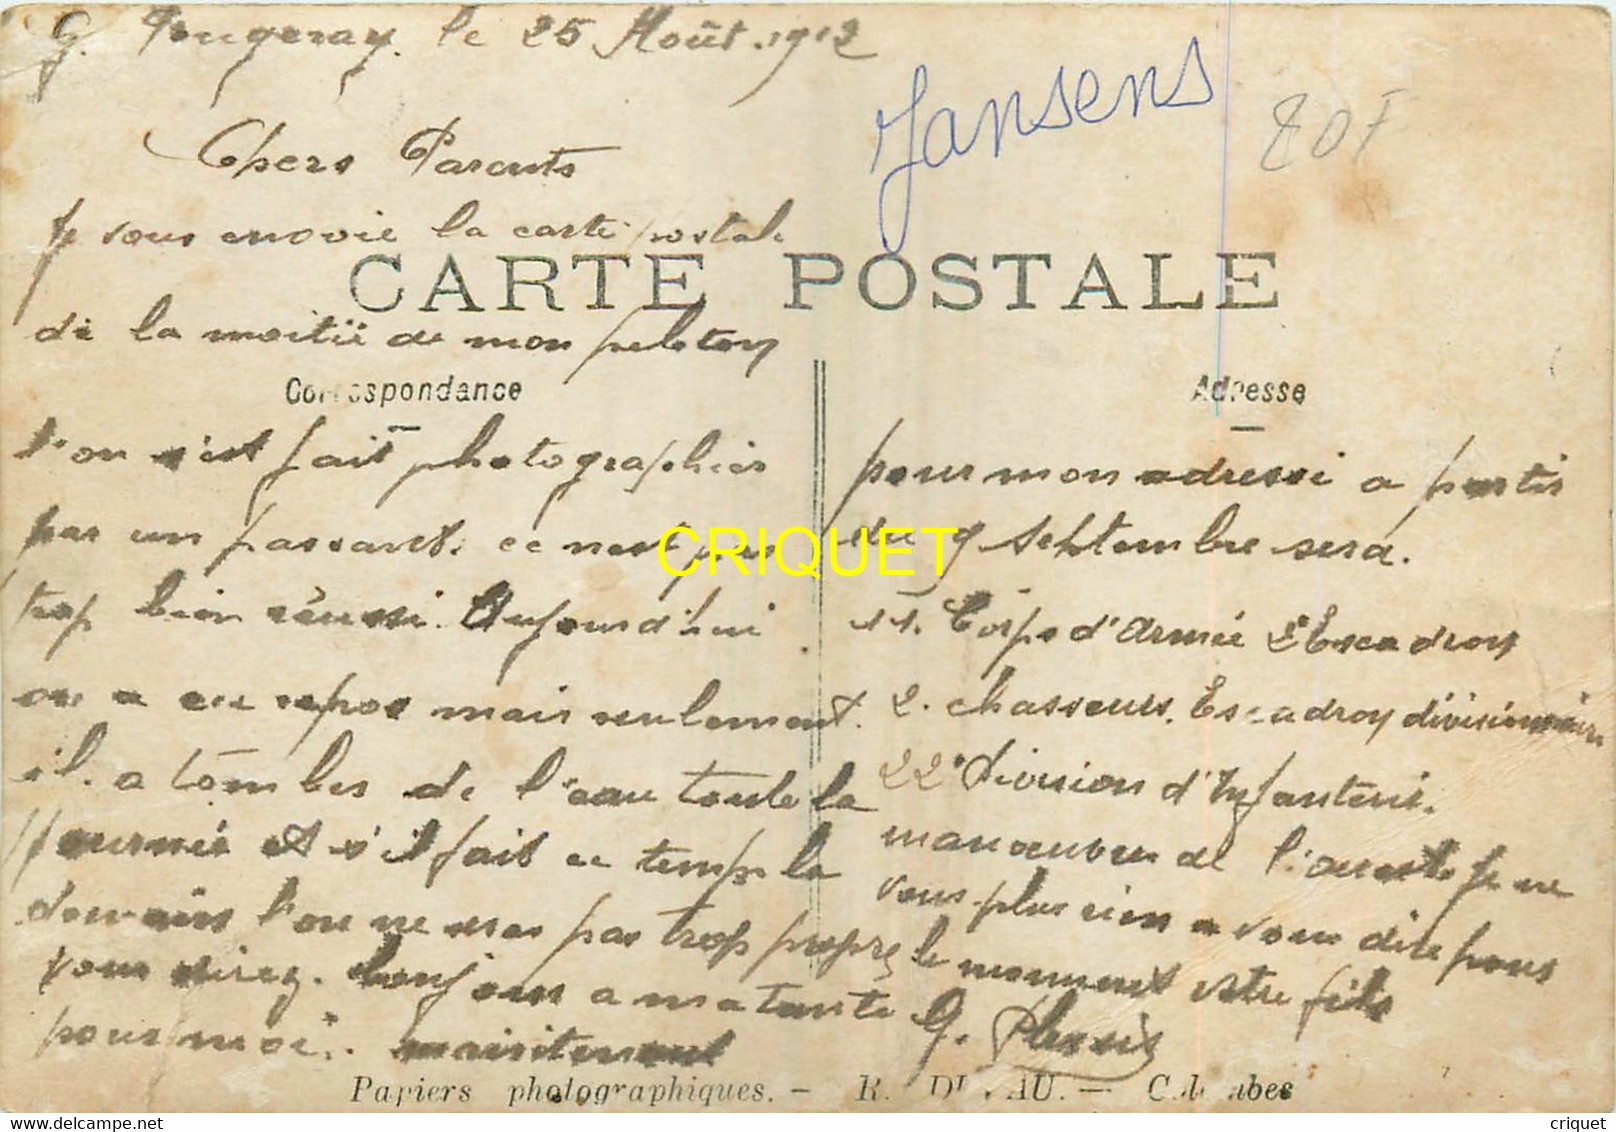 G. Fougeray. le 25 Août. 1912
Jansens
80F
Chers Parents
Je vous envoie la carte postale
CARTE POSTALE
de la moitié de mon peloton
Correspondance
l'on s'est fait photographier
par un passant. ce nest pas
trop bien réussi. Aujourd'hui
on a eu repos mais seulement.
il. a tombes de l'eau toute la
journée et s'il fait ce temps la
demain l'on ne sera pas trop propre
vous direz. bonjour a ma tante
pour moi. maintenant
Adresse
pour mon adresse a partir
du 9 Septembre sera.
11. Corps d'Armée 2e Escadron
2. chasseurs. Escadron divisionnaire
22e Division d'Infanterie.
manoeuvre de l'ouest je ne
vous plus rien a vous dire pour
le moment votre fils
G. Plessis
CRIQUET
Papiers photographiques. — R. — Colombes
www.delcampe.net
criquet